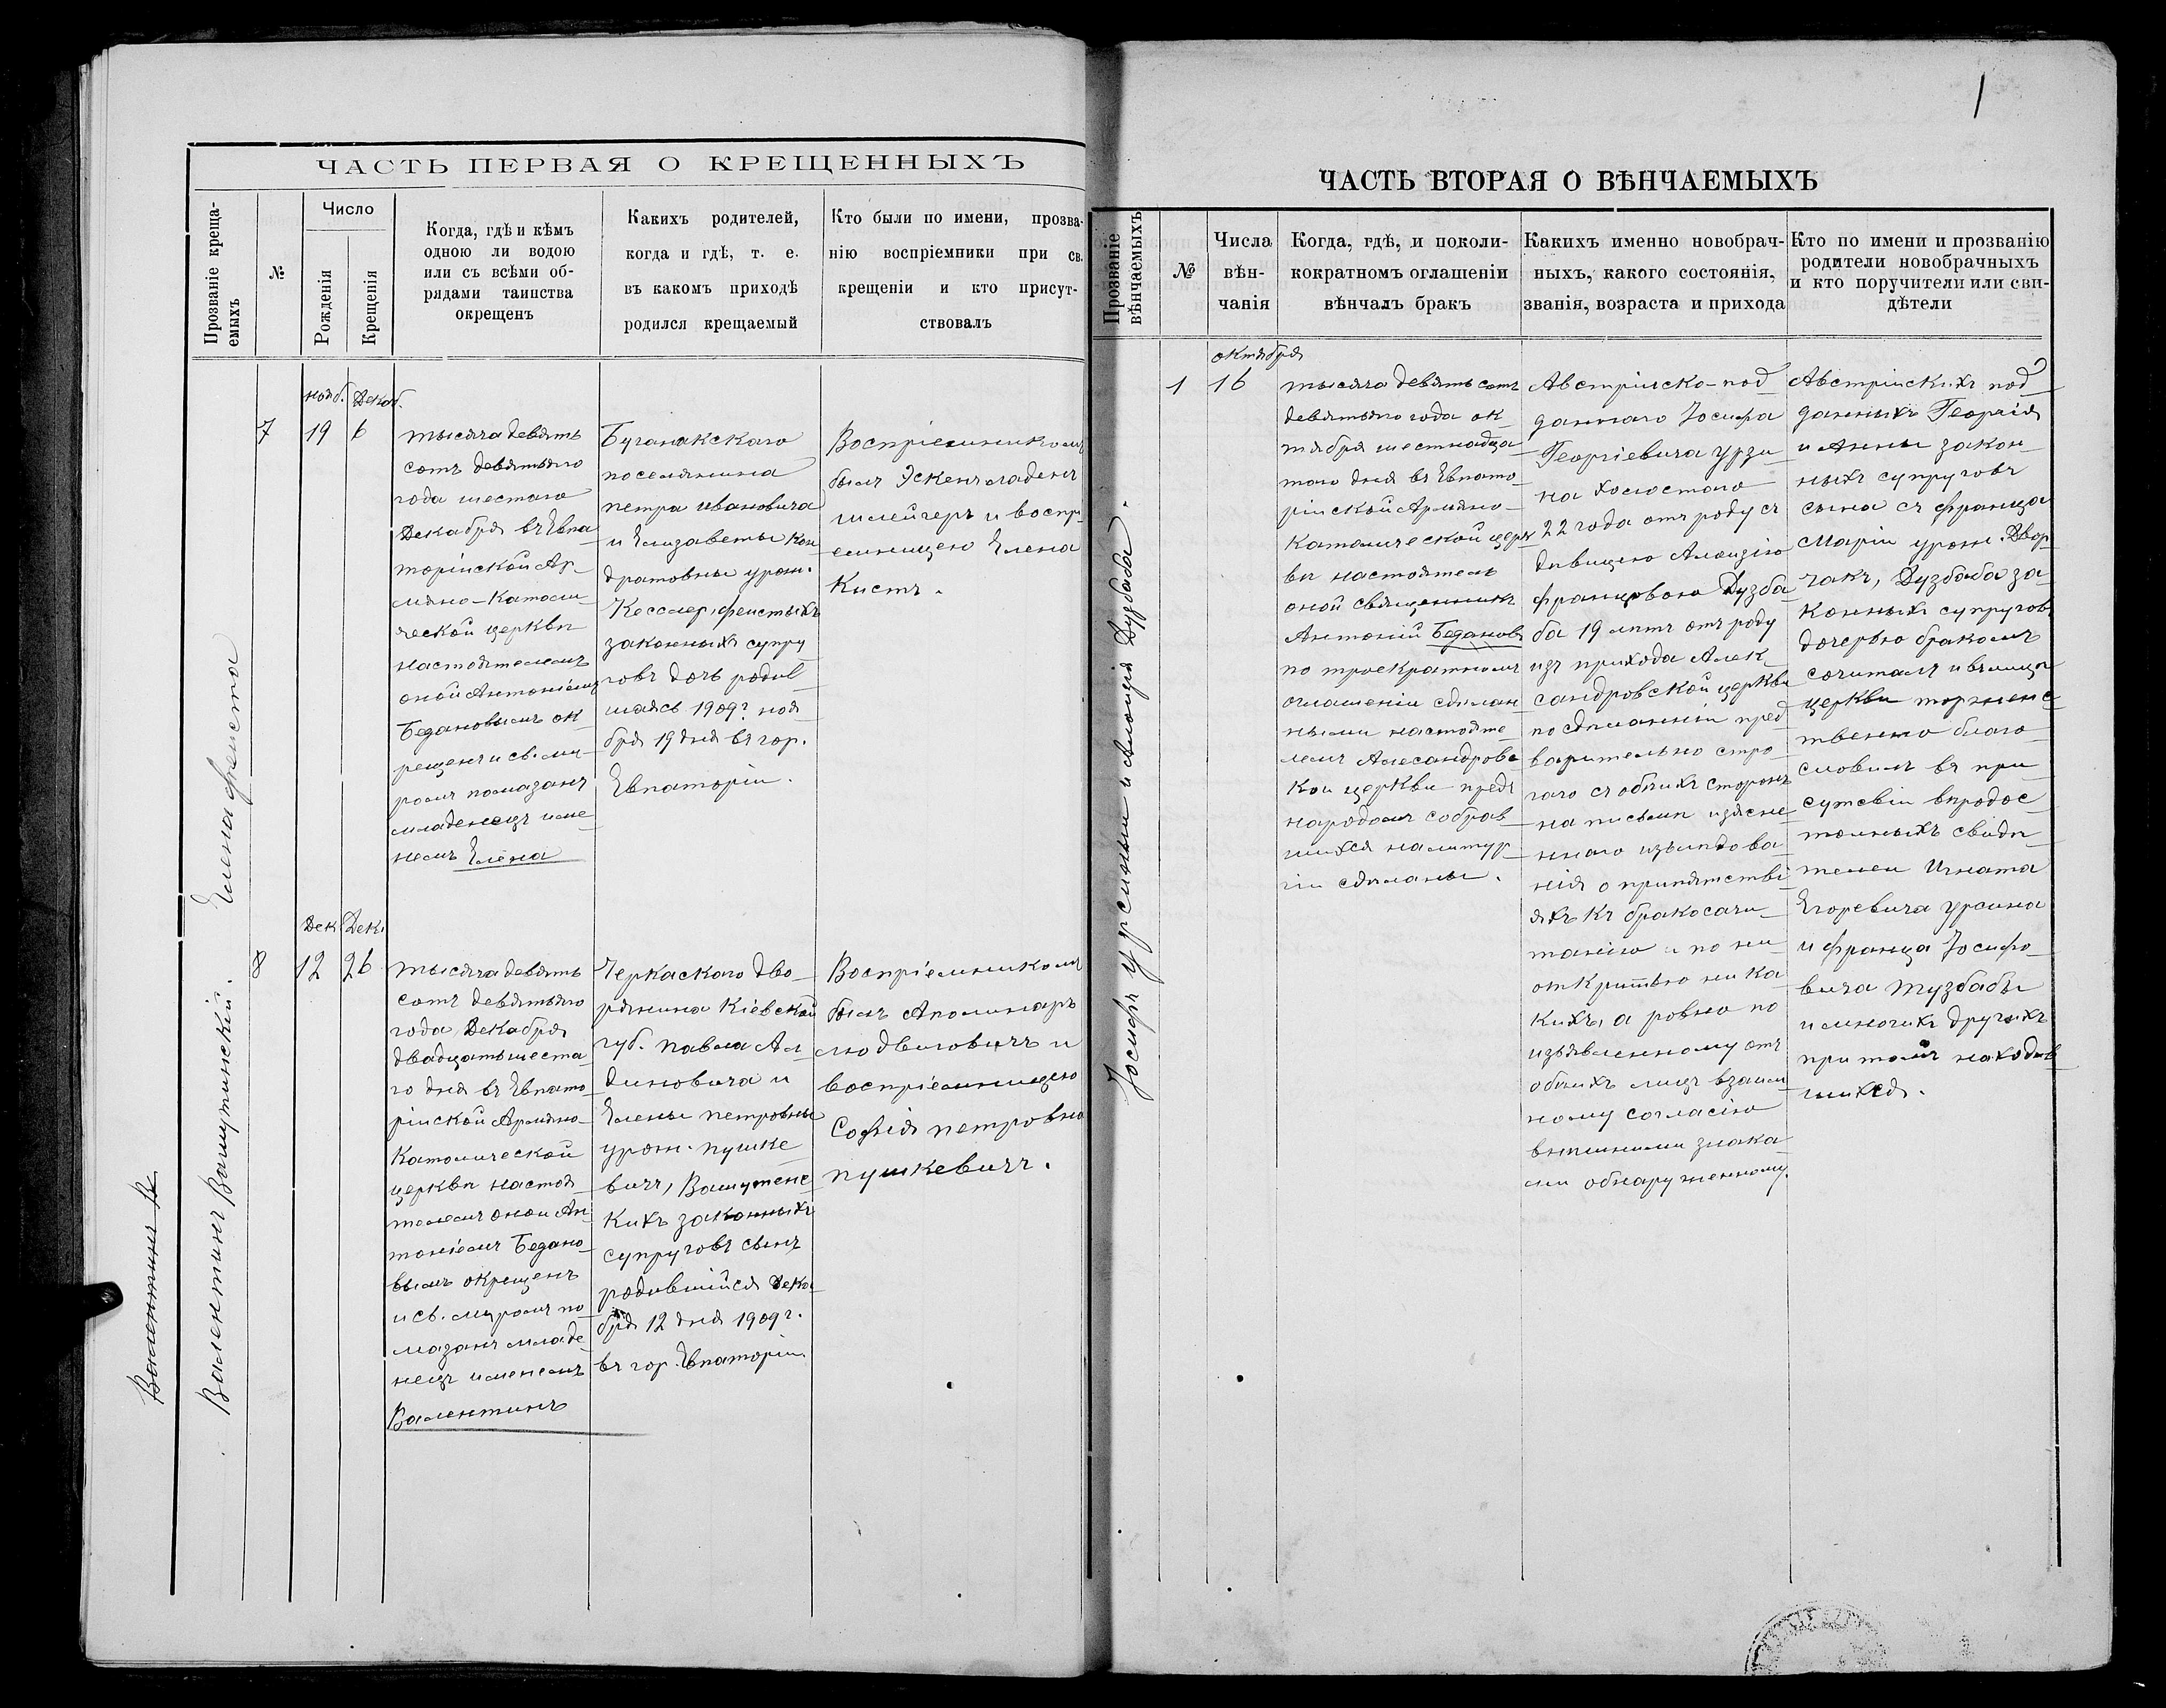 ЧАСТЬ ПЕРВАЯ О КРЕЩЕННЫХЪ
Прозваніе креща-
емыхъ
№
Число
Рожденія
Крещенія
Когда, гдѣ и кѣмъ
одною ли водою
или съ всѣми об-
рядами таинства
окрещенъ
Какихъ родителей,
когда и гдѣ, т. е.
въ какомъ приходѣ
родился крещаемый
Кто были по имени, прозва-
нію воспріемники при св.
крещеніи и кто присут-
ствовалъ
Елена Фейста
7
нояб. Декаб.
19 6
тысяча девять
сотъ девятаго
года шестого
Декабря въ Евпа
торійской Ар-
мяно-Католи-
ческой церкви
настоятелемъ
оной Антоніемъ
Бедановымъ ок
рещенъ и св. ми-
ромъ помазанъ
младенецъ име-
немъ Елена
Буганакскаго
поселянина
петра ивановича
и Елизаветы Кон
дратовны урож.
Кесслер, фейстыхъ
законныхъ супру
говъ дочь родив
шаясь 1909 г. ноя
бря 19 дня въ гор.
Евпаторіи.
Воспріемникомъ
былъ
шлейгеръ и воспрі
емницею Елена
Кистъ.
Валентинъ В
Валентинъ Вашутинскій.
8
Дек. Дек.
12 26
тысяча девять
сотъ девятаго
года Декабря
двадцать шеста
го дня въ Евпато
рійской Армяно-
Католической
церкви настоя
телемъ оной Ан
тоніемъ Бедано-
вымъ окрещенъ
и св. мѵромъ по
мазанъ младе
нецъ именемъ
Валентинъ
Черкаскаго дво-
рянина Кіевской
губ. павла Ал
диновича и
Елены петровны
урож. пушке
вичъ, Вашутенс
кихъ законныхъ
супруговъ сынъ
родившійся Дека
бря 12 дня 1909 г.
въ гор. Евпаторіи.
Воспріемникомъ
былъ Аполинаръ
людвиговичъ и
воспріемницею
Софія петровна
пушкевичъ.
1
ЧАСТЬ ВТОРАЯ О ВѢНЧАЕМЫХЪ
Прозваніе
вѣнчаемыхъ
№
Числа
вѣн-
чанія
Когда, гдѣ, и поколи-
кократномъ оглашеніи
вѣнчалъ бракъ
Какихъ именно новобрач-
ныхъ, какого состоянія,
званія, возраста и прихода
Кто по имени и прозванію
родители новобрачныхъ
и кто поручители или сви-
дѣтели
Іосифъ Урсинъ и Алоизія Дузбаба.
1
октября
16
тысяча девять сотъ
девятаго года ок
тября шестнадца
таго дня въ Евпато
рійской Армяно-
Католической церк
ви настоятель
оной священникъ
Антоній Бедановъ
по троекратномъ
оглашеніи сдѣлан
ными настояте
лемъ Алесандровс
кой церкви предъ
народомъ собрав
шихся на литур
гіи сдѣланы.
Австрійско-под
даннаго Іосифа
Георгіевича урзи
на холостого
22 года отъ роду съ
дѣвицею Алоизію
францовою Дузба
ба 19 лѣтъ отъ роду
изъ прихода Алек
сандровской церкви
по сдѣланніи пред
варительно стро
гаго съ обѣихъ сторонъ
на письмѣ изясне
ннаго изслѣдова
нія о припятстві
яхъ къ бракосачи
танію и по не
открытью ника
кихъ, а ровно по
изъявленному отъ
обѣихъ лицъ взаим
ному согласію
внѣшними знака
ми обнаруженному.
Австрійскихъ под
данныхъ Георгія
и Анны закон
ныхъ супруговъ
сына съ франца
Маріи урож. Двор
чакъ, Дузбаба за
конныхъ супруговъ
дочерью бракомъ
сочиталъ и въ лицѣ
церкви торженс
твенно благо
словилъ въ при
сутсвіи вѣродос
тойныхъ свидѣ
телей Игната
Егоревича урсина
и франца Іосифо
вича тузбабы
и многихъ другихъ
при томъ находив
шихся.